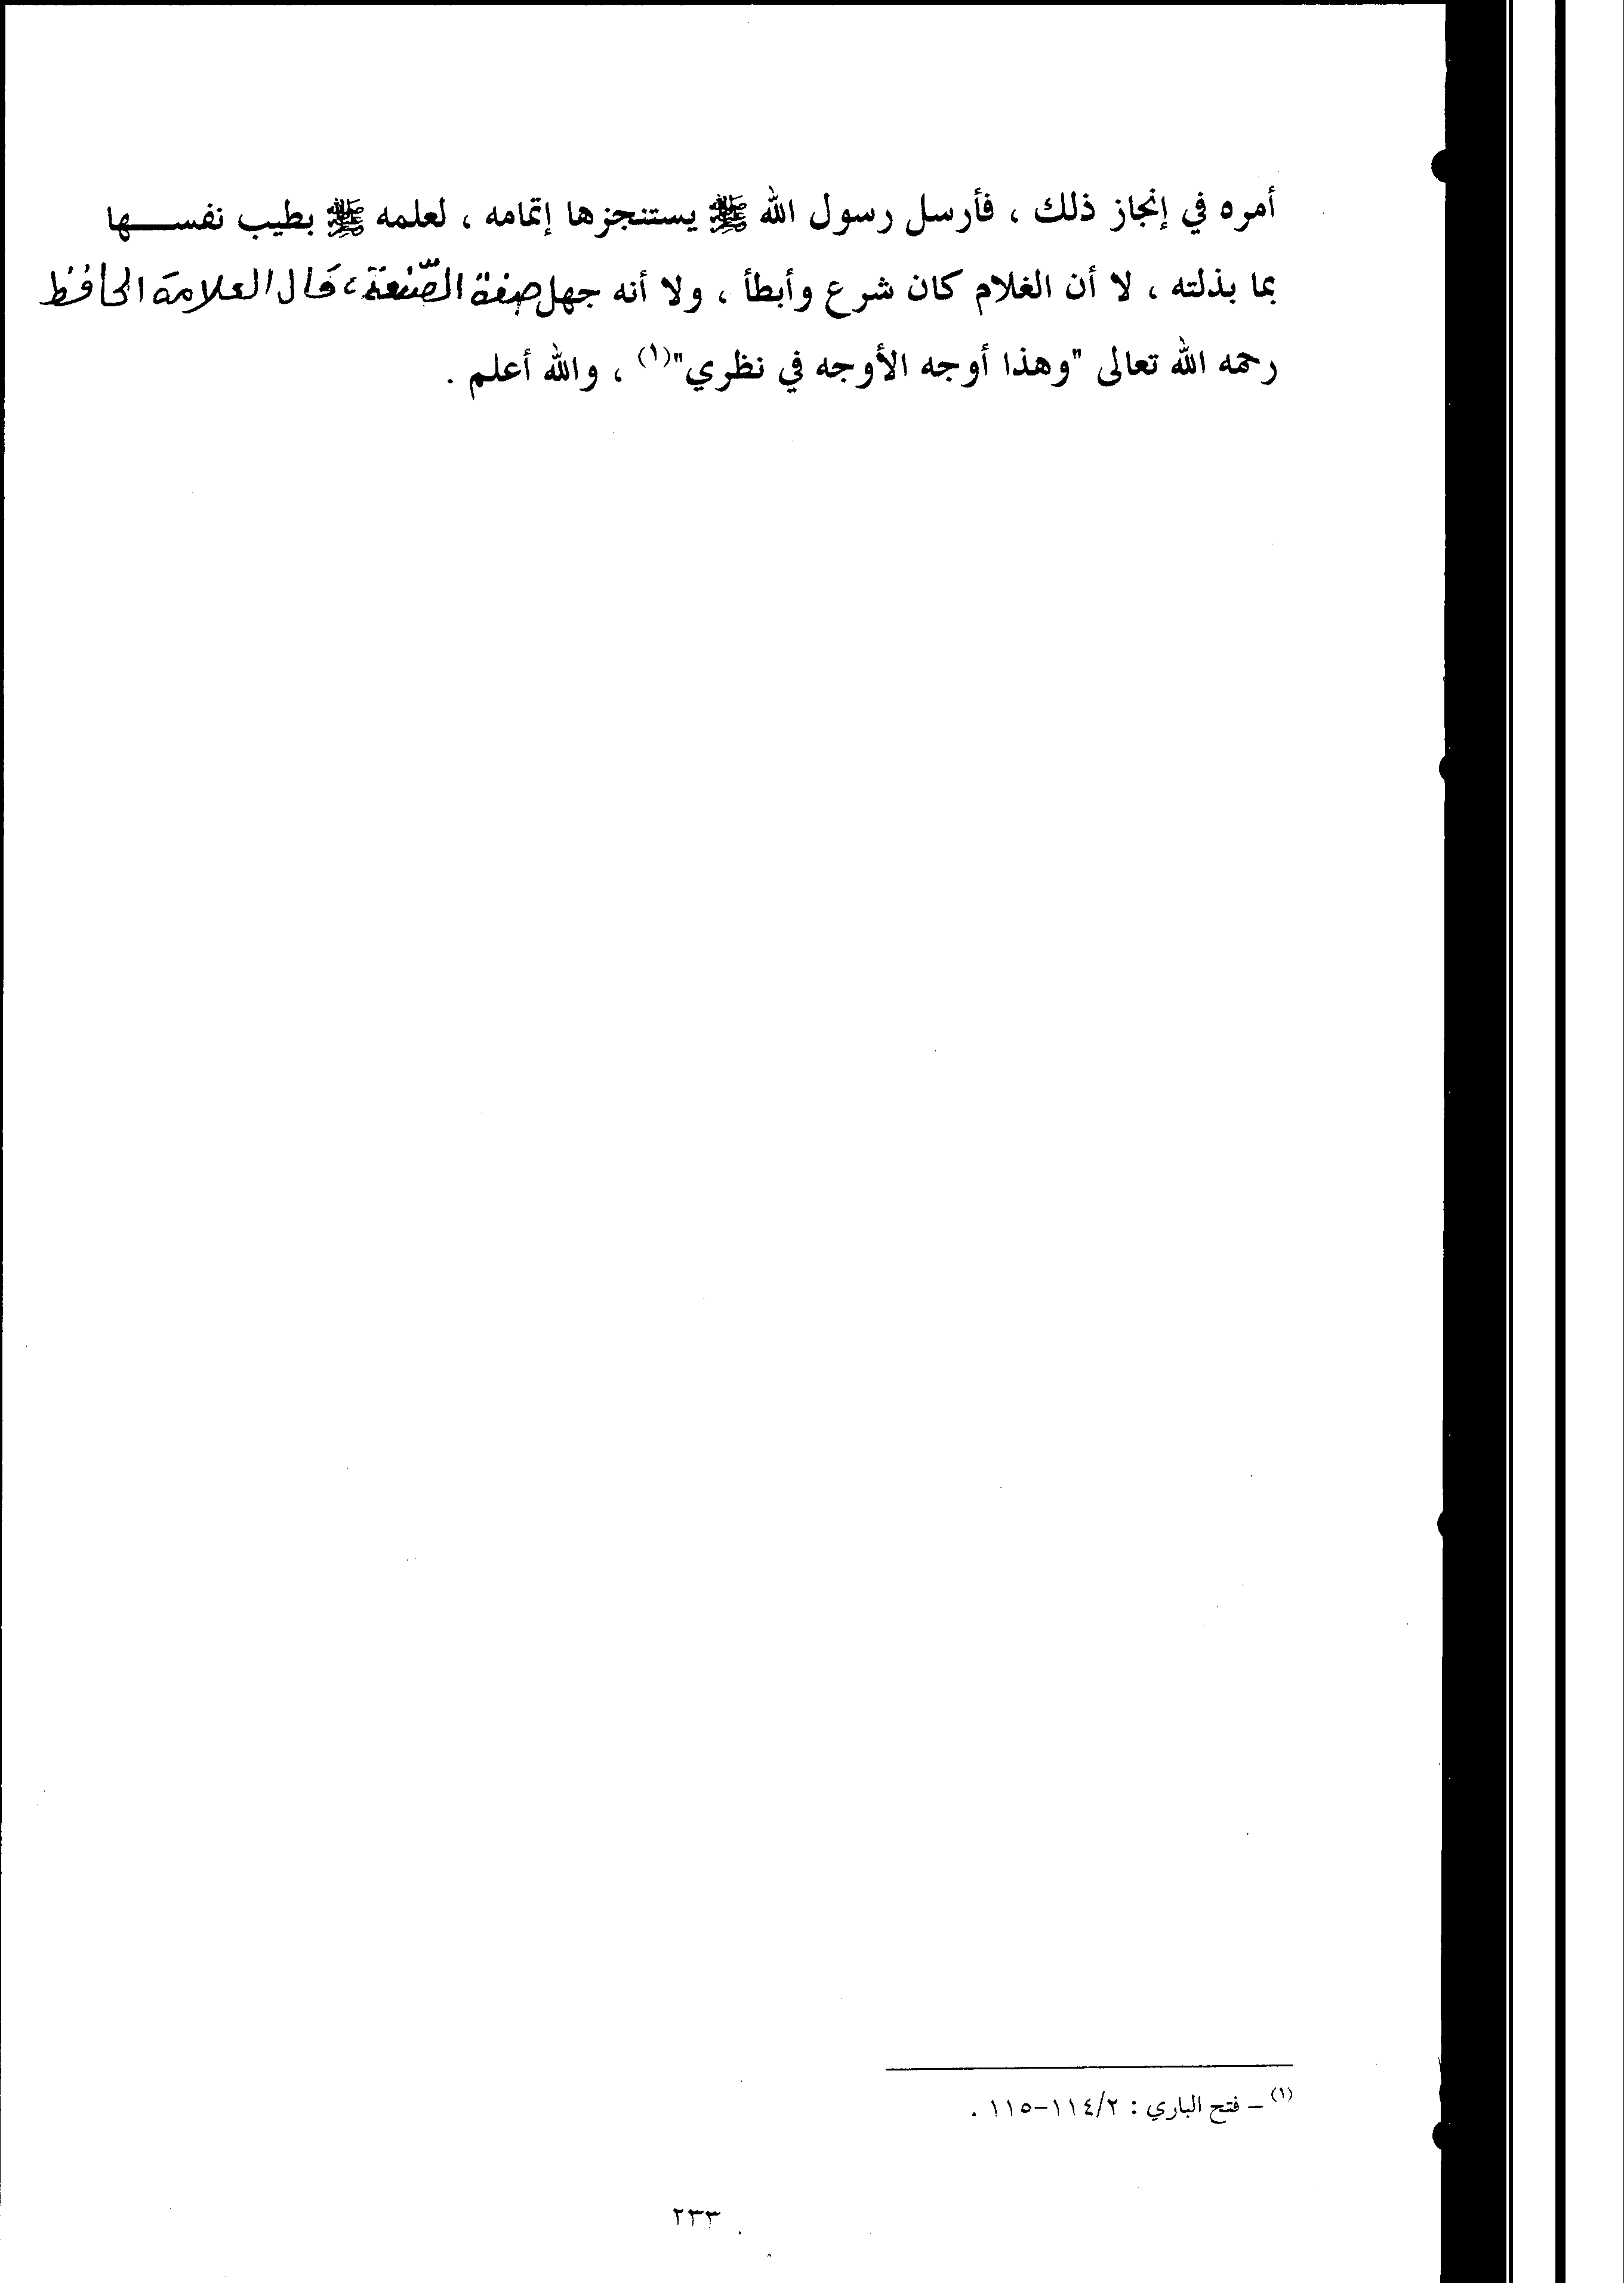 أمره في إنجاز ذلك ، فأرسل رسول الله ﷺ يستنجزها إتمامه ، لعلمه ﷺ بطيب نفســـها
بما بذلته ، لا أن الغلام كان شرع وأبطأ ، ولا أنه جهل صفة الصّنعة، قال العلامة الحافظ
رحمه الله تعالى "وهذا أوجه الأوجه في نظري"(١) ، والله أعلم .
(١) – فتح الباري : ١١٤/٢-١١٥ .
٢٣٣